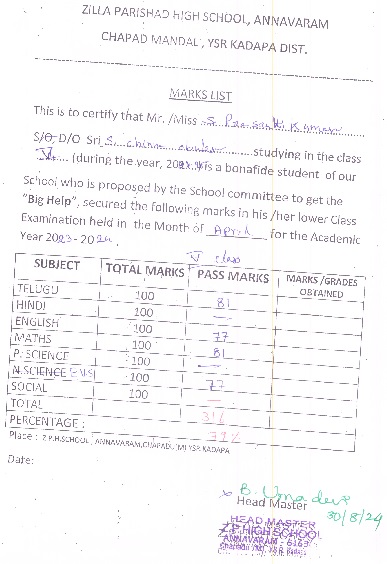 ZILLA PARISHAD HIGH SCHOOL, ANNAVARAM
CHAPAD MANDAL, YSR KADAPA DIST.
MARKS LIST
This is to certify that Mr. /Miss S
S/O, D/O Sri S. studying in the class
(during the year, is a bonafide student of our
School who is proposed by the School committee to get the
"Big Help", secured the following marks in his /her lower Class
Examination held in the Month of April for the Academic
Year 2023-2024.
V class
SUBJECT TOTAL MARKS PASS MARKS MARKS /GRADES OBTAINED
TELUGU 100 81
HINDI 100 —
ENGLISH 100 77
MATHS 100 81
P. SCIENCE 100 —
N.SCIENCE 100 77
SOCIAL 100 —
TOTAL 316
PERCENTAGE : 79%
Place : Z.P.H.SCHOOL, ANNAVARAM,CHAPADU(M) YSR KADAPA
Date:
B. Uma devi
Head Master
30/8/24
HEAD MASTER
Z.P. HIGH SCHOOL
ANNAVARAM